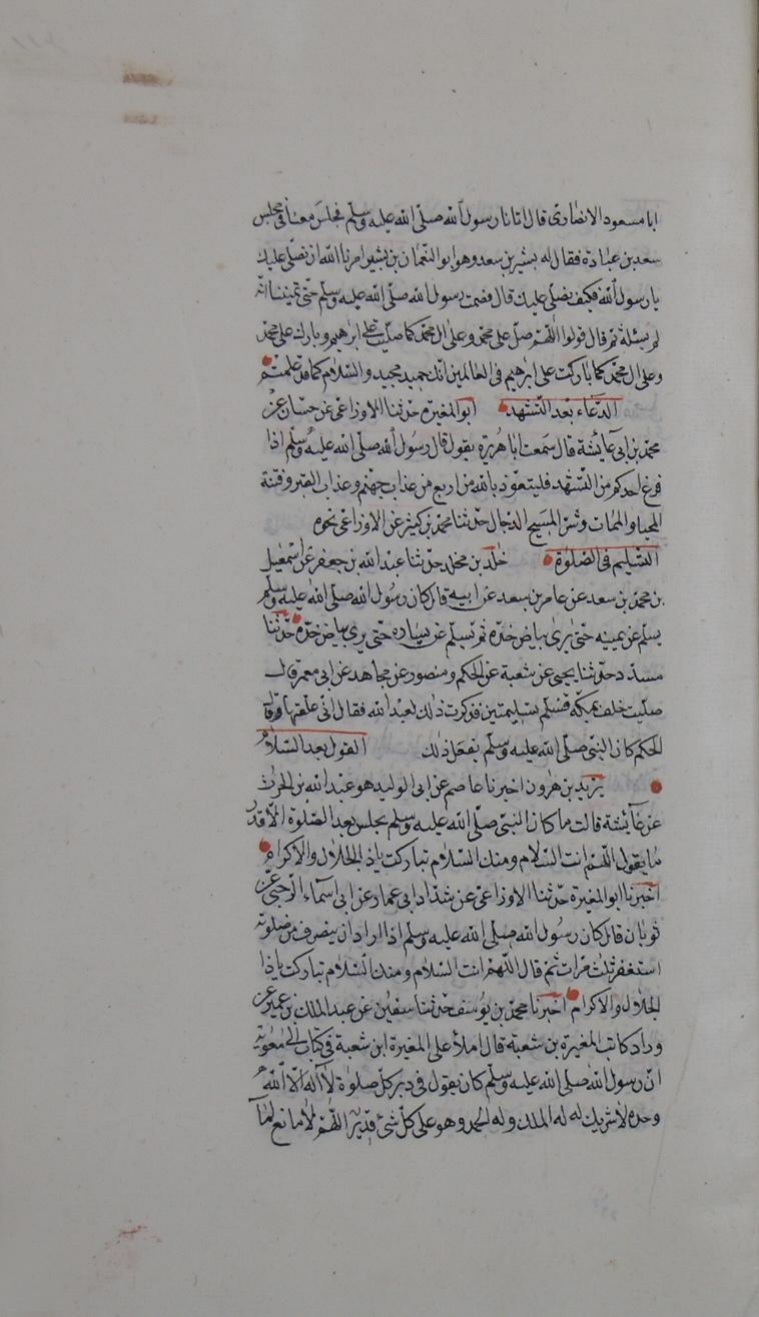 ابا مسعود الانصاری قال اتانا رسول الله صلی الله علیه وسلم فجلس معنا فی مجلس
سعد بن عبادة فقال له بشیر بن سعد وهو ابو النعمان بن بشیر امرنا الله ان نصلی علیك
یا رسول الله فکیف نصلی علیك قال فصمت رسول الله صلی الله علیه وسلم حتی تمنینا انه
لم یسئله ثم قال قولوا اللهم صل علی محمد وعلی ال محمد کما صلیت علی ابرهیم وبارك علی محمد
وعلی ال محمد کما بارکت علی ابرهیم فی العالمین انك حمید مجید والسلام کما قد علمتم
الدعاء بعد التشهد ابو المغیره حدثنا الاوزاعی عن حسان عن
محمد بن ابی عایشة قال سمعت ابا هریرة یقول قال رسول الله صلی الله علیه وسلم اذا
فرغ احدکم من التشهد فلیتعوذ بالله من اربع من عذاب جهنم وعذاب القبر وفتنة
المحیا والممات وشر المسیح الدجال حدثنا محمد بن کثیر عن الاوزاعی نحوه
التسلیم فی الصلوة خلد بن مخلد حدثنا عبد الله بن جعفر عن اسمعیل
بن محمد بن سعد عن عامر بن سعد عن ابیه قال کان رسول الله صلی الله علیه وسلم
یسلم عن یمینه حتی یری بیاض خده ثم یسلم عن یساره حتی یری بیاض خده حدثنا
مسدد حدثنا یحیی عن شعبة عن الحکم ومنصور عن مجاهد عن ابی معمر قال
صلیت خلف بمکة فسلم تسلیمتین فذکرت ذلك لعبد الله فقال انی علقها وقال
الحکم کان النبی صلی الله علیه وسلم یفعل ذلك القول بعد السلام
یزید بن هرون اخبرنا عاصم عن ابی الولید هو عبد الله بن الحرث
عن عایشة قالت ما کان النبی صلی الله علیه وسلم یجلس بعد الصلوة الا قدر
ما یقول اللهم انت السلام ومنك السلام تبارکت یاذا الجلال والاکرام
اخبرنا ابو المغیرة حدثنا الاوزاعی عن شداد ابی عمار عن ابی اسماء الرحبی عن
ثوبان قال کان رسول الله صلی الله علیه وسلم اذا اراد ان ینصرف من صلوته
استغفر ثلث مرات ثم قال اللهم انت السلام ومنك السلام تبارکت یاذا
الجلال والاکرام اخبرنا محمد بن یوسف حدثنا سفین عن عبد الملك بن عمیر عن
وراد کاتب المغیرة بن شعبة قال املأ علی المغیرة ابن شعبة فی کتاب الی معویه
ان رسول الله صلی الله علیه وسلم کان یقول فی دبر کل صلوة لا اله الا الله
وحده لا شریك له له الملك وله الحمد وهو علی کل شئ قدیر اللهم لا مانع لما